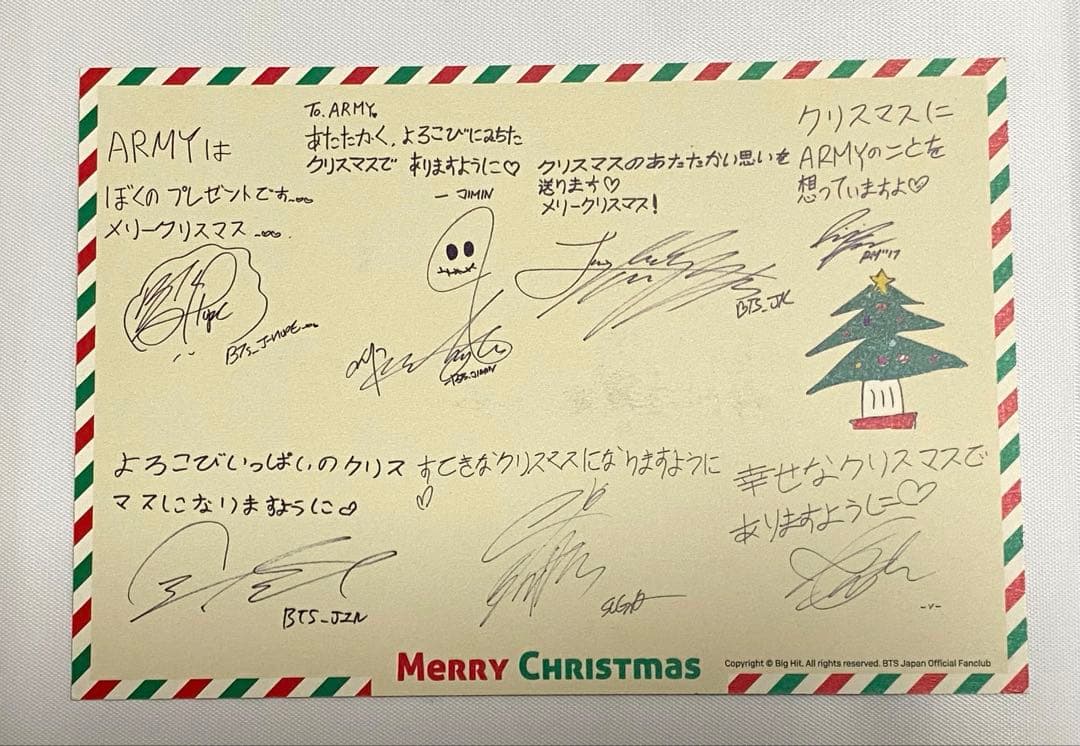 ARMYは
ぼくの プレゼントです
メリークリスマス
BTS_J-HOPE
To. ARMY.
あたたかく、よろこびにみちた
クリスマスで ありますように♡
— JIMIN
BTS_JIMIN
クリスマスのあたたかい思いを
送ります♡
メリークリスマス!
BTS_JK
クリスマスに
ARMYのことを
想っていますよ♡
RM''17
よろこびいっぱいのクリス
マスになりますように♡
BTS_JIN
すてきなクリスマスになりますように
♡
SUGA
幸せなクリスマスで
ありますように♡
-V-
MERRY CHRISTMAS
Copyright © Big Hit. All rights reserved. BTS Japan Official Fanclub